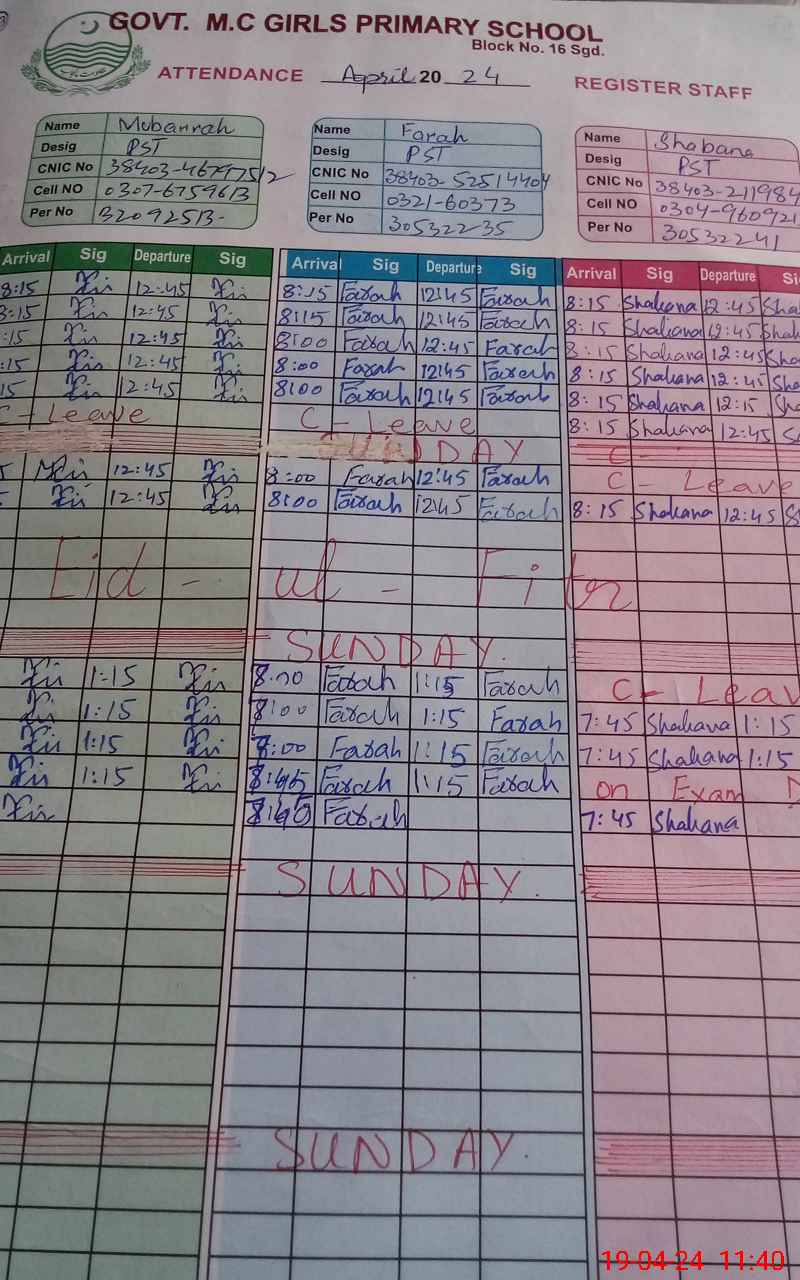 GOVT. M.C GIRLS PRIMARY SCHOOL
Block No. 16 Sgd.
ATTENDANCE April 20 24 REGISTER STAFF
Name Mubanrah
Desig PST
CNIC No
Cell NO 0307-6759613
Per No
Name Farah
Desig PST
CNIC No 38403-52514404
Cell NO 0321-60373
Per No 305322-35
Name Shabana
Desig PST
CNIC No 38403-211984
Cell NO 0304-960921
Per No 30532241
Arrival Sig Departure Sig Arrival Sig Departure Sig Arrival Sig Departure Si
8:15 12:45 8:15 Farah 12:45 Farah 8:15 Shabana 12:45 Sha
8:15 12:45 8:15 Farah 12:45 Farah 8:15 Shabana 12:45 Shab
:15 12:45 8:00 Farah 12:45 Farah 8:15 Shabana 12:45 Sha
:15 12:45 8:00 Farah 12:45 Farah 8:15 Shabana 12:45 Sha
15 12:45 8:00 Farah 12:45 Farah 8:15 Shabana 12:15 Sha
C-Leave C-Leave 8:15 Shabana 12:45 S
SUNDAY C-
12:45 8:00 Farah 12:45 Farah C-Leave
12:45 8:00 Farah 12:45 Farah 8:15 Shabana 12:45 S
Eid - ul - Fitr
SUNDAY.
1:15 8:00 Farah 1:15 Farah C-Leav
1:15 8:00 Farah 1:15 Farah 7:45 Shabana 1:15
1:15 8:00 Farah 1:15 Farah 7:45 Shabana 1:15
1:15 Farah 1:15 Farah on Exam D
Farah 7:45 Shabana
SUNDAY.
SUNDAY.
19-04-24 11:40